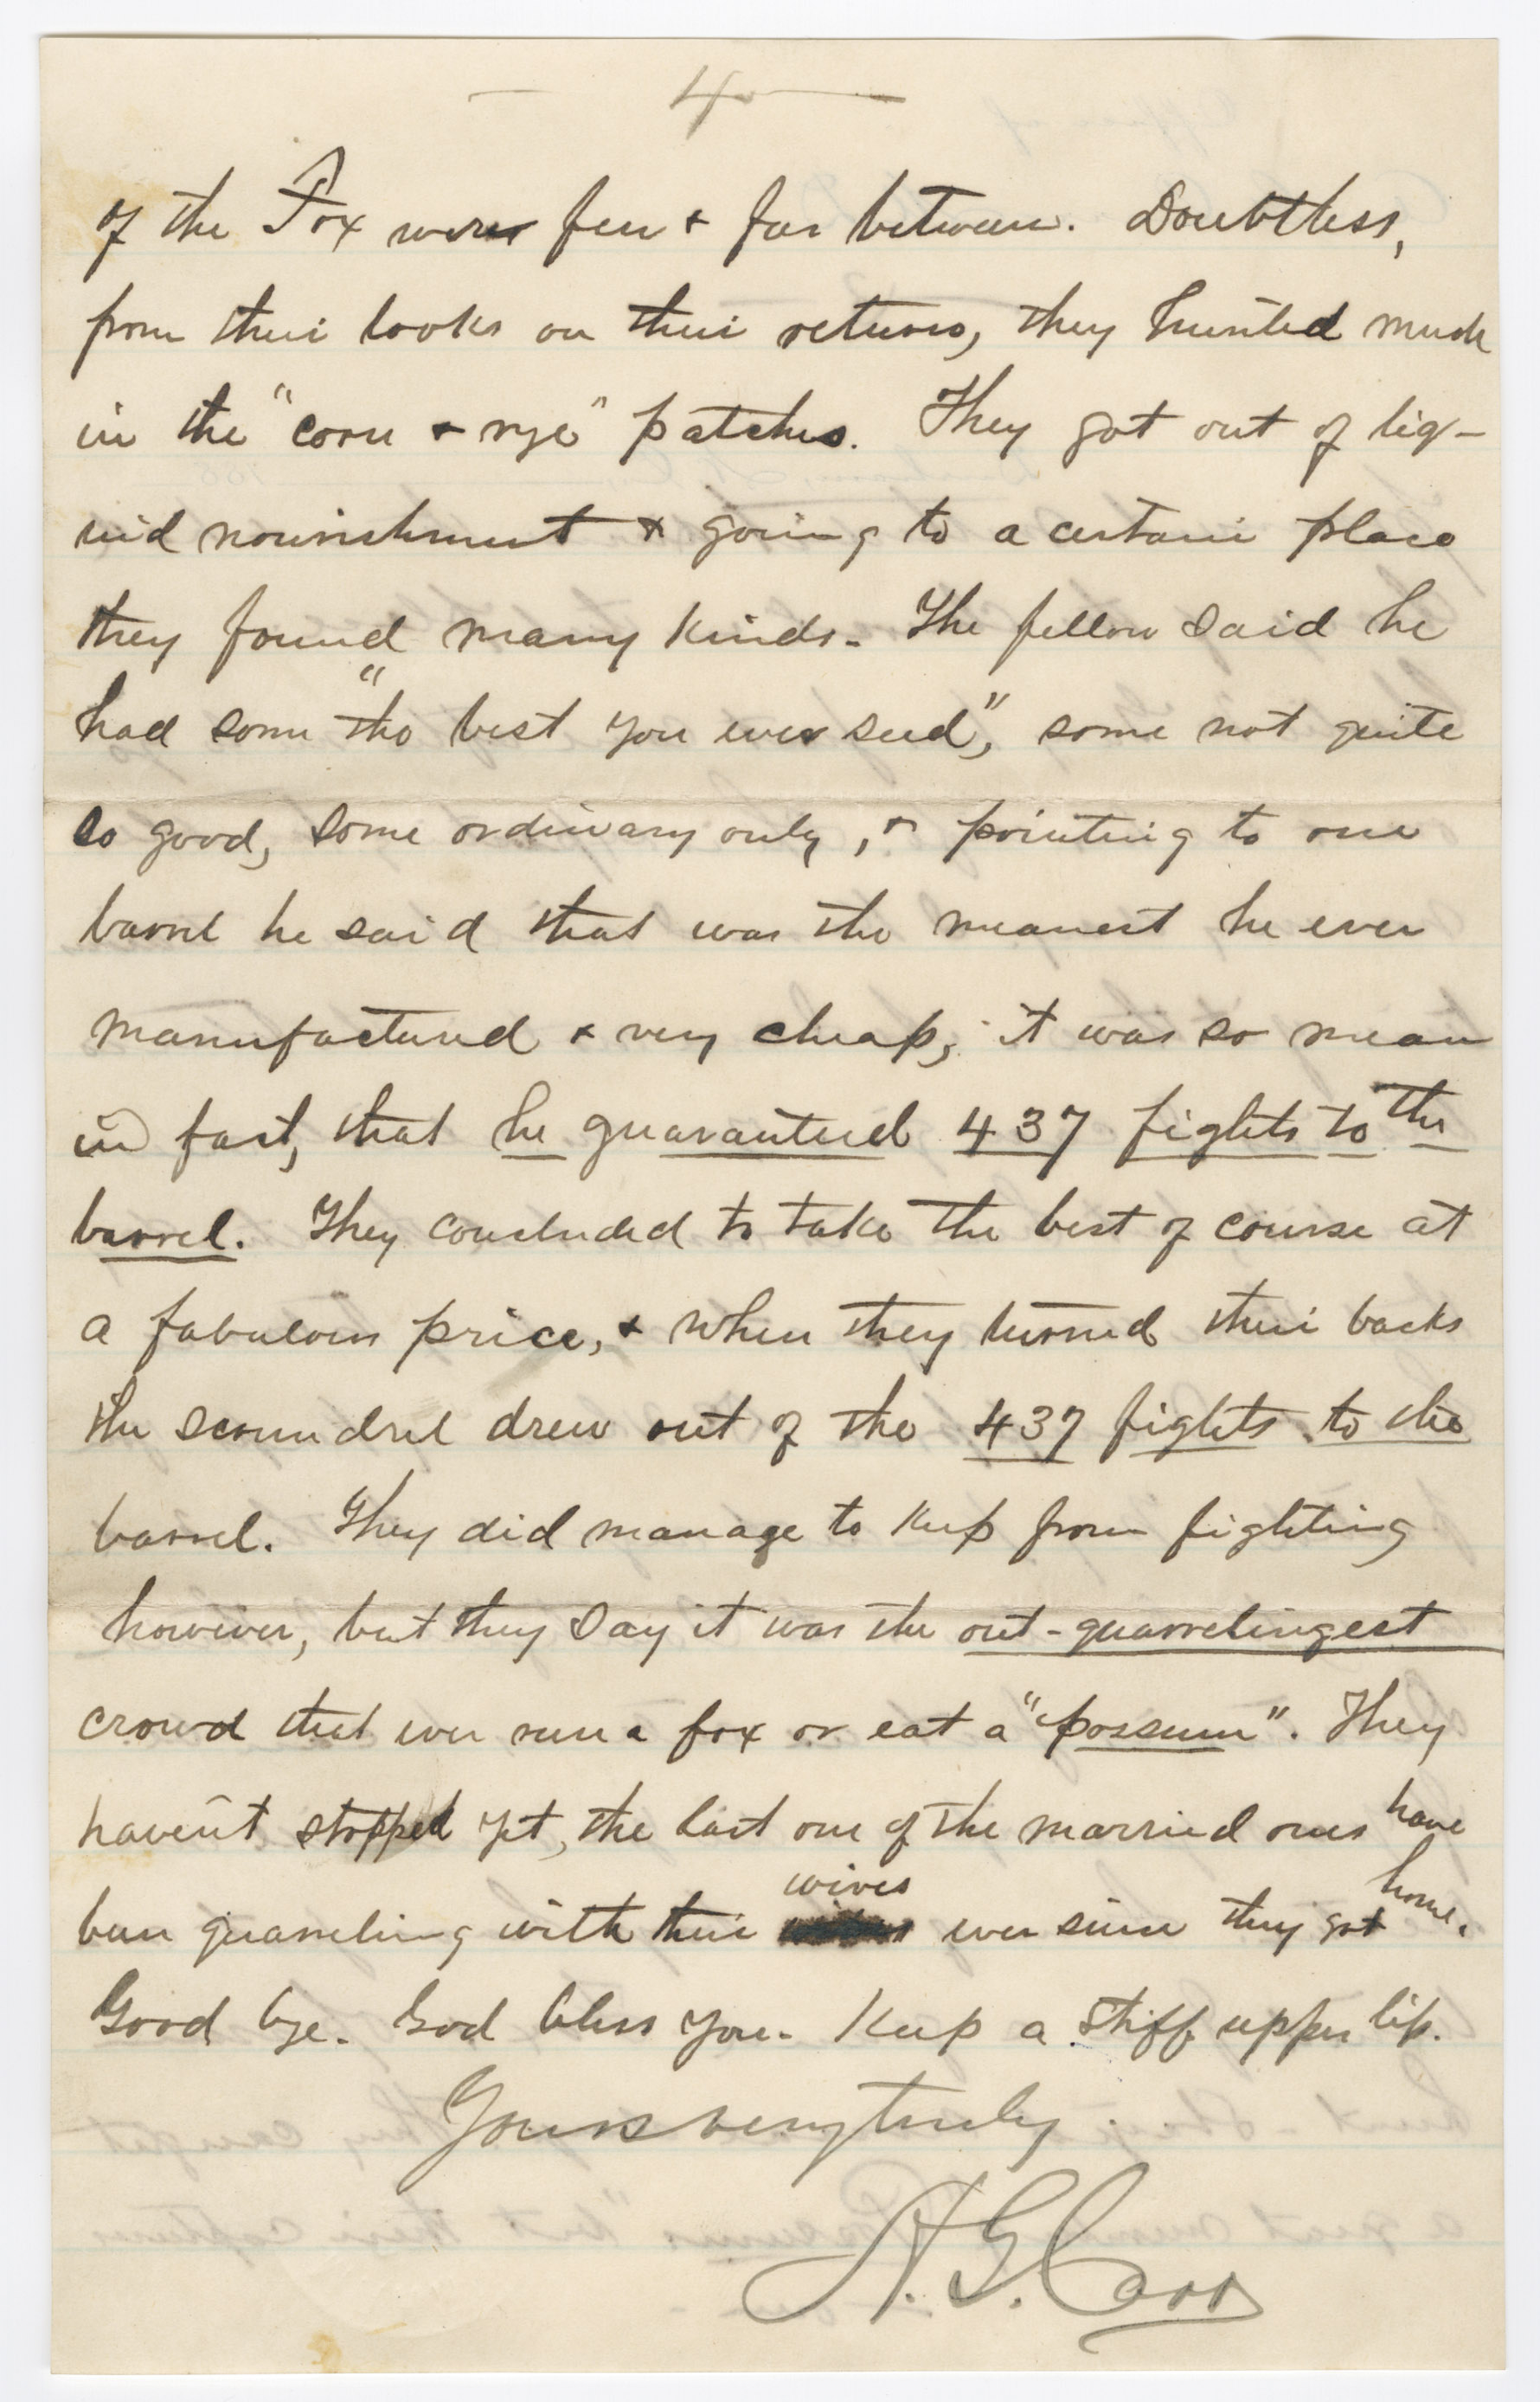 4
of the Fox were few & far between. Doubtless,
from their looks on their return, they hunted much
in the "corn & rye" patches. They got out of liq-
uid nourishment & going to a certain place
they found many kinds. The fellow said he
had some "the best you ever seed", some not quite
so good, some ordinary only, & pointing to one
barrel he said that was the meanest he ever
manufactured & very cheap; it was so mean
in fact, that he guaranteed 437 fights to the
barrel. They concluded to take the best of course at
a fabulous price, & when they turned their backs
the scoundrel drew out of the 437 fights to the
barrel. They did manage to keep from fighting
however, but they say it was the out-quarrelingest
crowd that ever run a fox or eat a "possum". They
haven't stopped yet, the last one of the married ones have
been quarreling with their wives ever since they got home.
Good bye. God bless you. Keep a stiff upper lip.
Yours very truly.
A. G. Carr